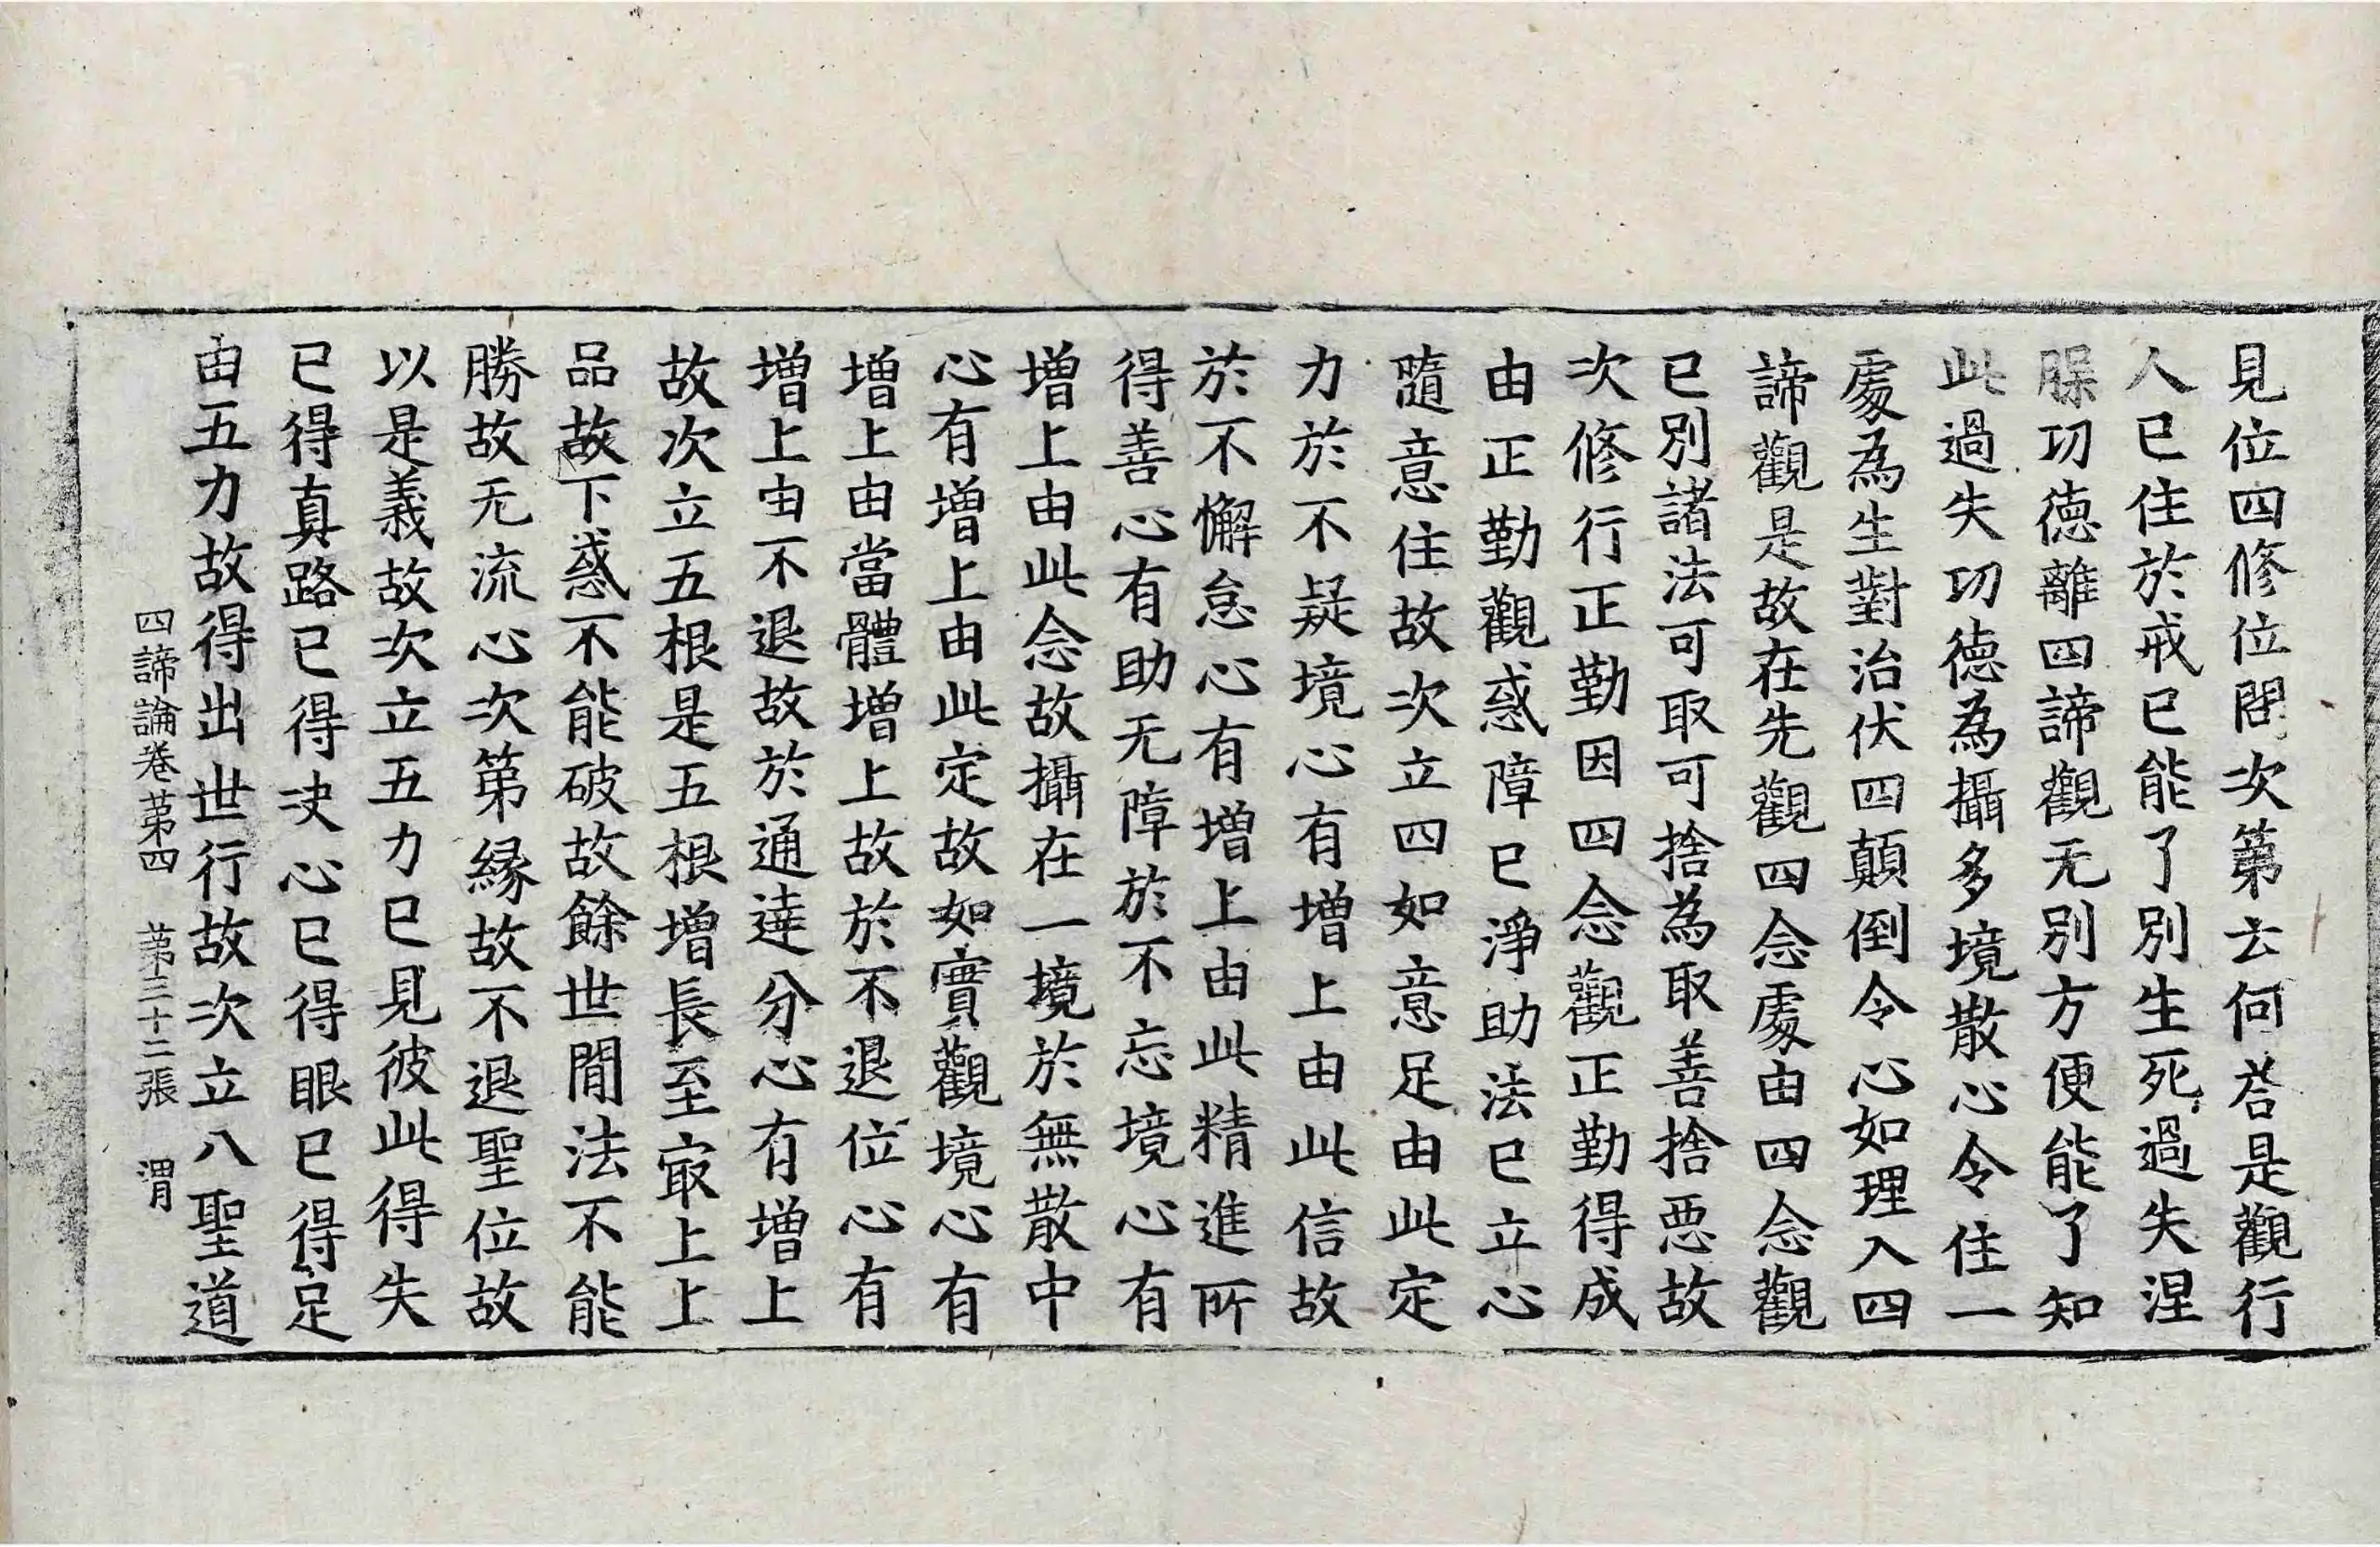 見位四修位問次第云何荅是觀行
人已住於戒已能了別生死過失涅
𦜮功徳離四諦觀无別方便能了知
此過失功徳為攝多境散心令住一
䖏為生對治伏四顛倒令心如理入四
諦觀是故在先觀四念䖏由四念觀
已別諸法可取可捨為取善捨惡故
次修行正勤因四念觀正勤得成
由正勤觀惑障已淨助法已立心
隨意住故次立四如意足由此定
力於不疑境心有增上由此信故
於不懈怠心有增上由此精進所
得善心有助无障於不忘境心有
增上由此念故攝在一境於無散中
心有增上由此定故如實觀境心有
增上由當體增上故於不退位心有
增上由不退故於通達分心有增上
故次立五根是五根增長至㝡上上
品故下惑不能破故餘世間法不能
勝故无流心次第緣故不退聖位故
以是義故次立五力已見彼此得失
已得真路已得决心已得眼已得足
由五力故得出世行故次立八聖道
四諦論卷第四 第三十二張 渭